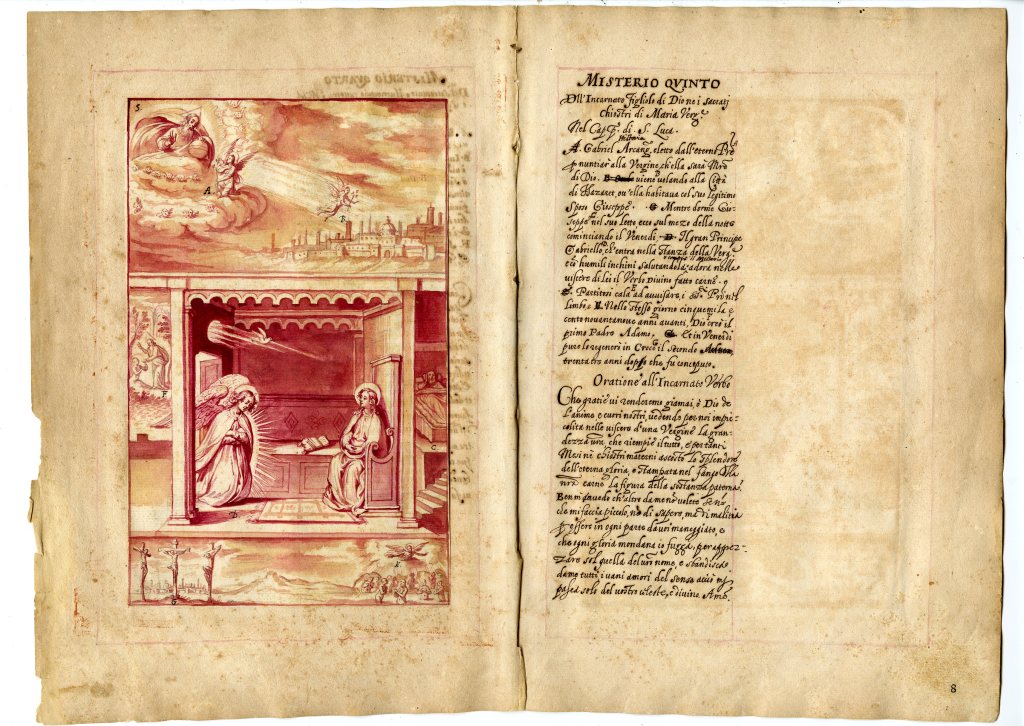 5.
A.
B.
C.
D
F
G
K
MISTERIO QVINTO
Dell'Incarnato Figliolo di Dio ne i sacrati
Chiostri di Maria Verg.
Nel Cap.º di S. Luca.
A. Gabriel Arcang. eletto dall'eterno Pre
nuntiar alla Vergine, ch'ella sarà Mre
di Dio. B. viene volando alla Città
di Nazaret, ou'ella habitaua col suo legitimo
Sposo Gioseppe. C. Mentre dorme Gio-
seppe nel suo letto ecco sul mezo della notte
cominciando il Venerdì. D. Il gran Principe
Gabriello, ch'entra nella stanza della Verg.
e co humili inchini salutandola, adora nelle
viscere di lei il Verbo Divino fatto carne.
Partitosi cala ad auuisare i Pri nel
limbo. Nello stesso giorno cinque mila e
cento nouantanoue anni auanti, Dio creò il
primo Padre Adamo. G. Et in Venerdì
pure lo regenerò in Croce il secondo
trenta tre anni doppo che fu conceputo.
Oratione all'Incarnato Verbo
Che gratie ui renderemo giamai, ò Dio de
l'anime e cuori nostri, uedendo per noi impic-
colita nelle uiscere d'una Vergine la gran-
dezza ura, che riempie il tutto, e per tanti
Mesi ne chiostri materni ascosto lo splendore
dell'eterna gloria, e stampata nel fango della
nra carne la figura della sostanza paterna.
Ben m'auuedo ch'altro da me no uolete se no
che mi faccia picolo, ne di sapere, ne di malitia
offero in ogni parte da uoi maneggiato, e
che ogni gloria mondana io fugga, per apprez-
zare sol quella del uro nome, e sbandisca
da me tutti i uani amori del senso acciò mi
pasca solo del uostro celeste, e diuino. Ame.
8